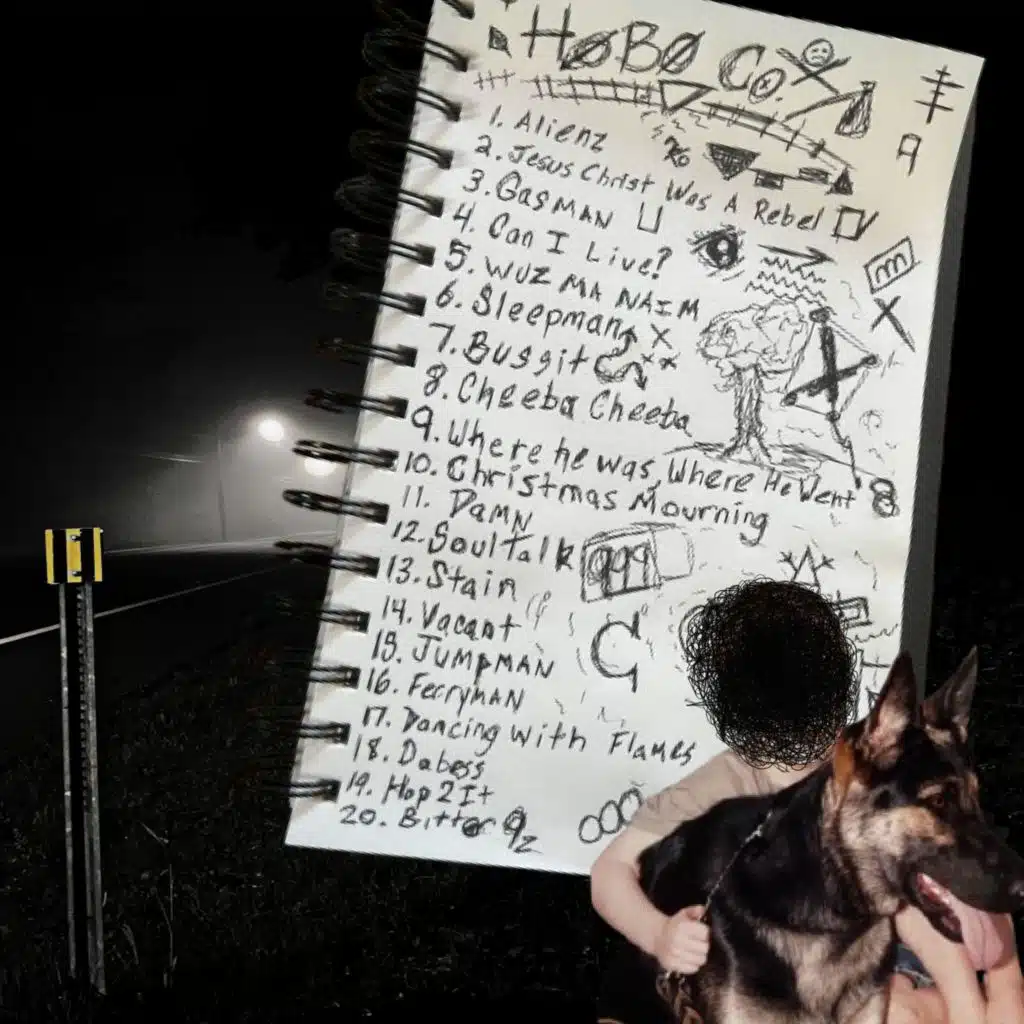 HØBØ Co.
1. Alienz
2. Jesus Christ Was A Rebel
3. GasMAN
4. Can I Live?
5. WUZ MA NAIM
6. Sleepmang
7. Buggit
8. Cheeba Cheeba
9. Where he was, Where He Went
10. Christmas Mourning
11. DAMN
12. Soultalk
13. Stain
14. Vacant
15. JUMPMAN
16. FerryMAN
17. Dancing with Flames
18. Dabess
19. Hop 2 It
20. Bitter